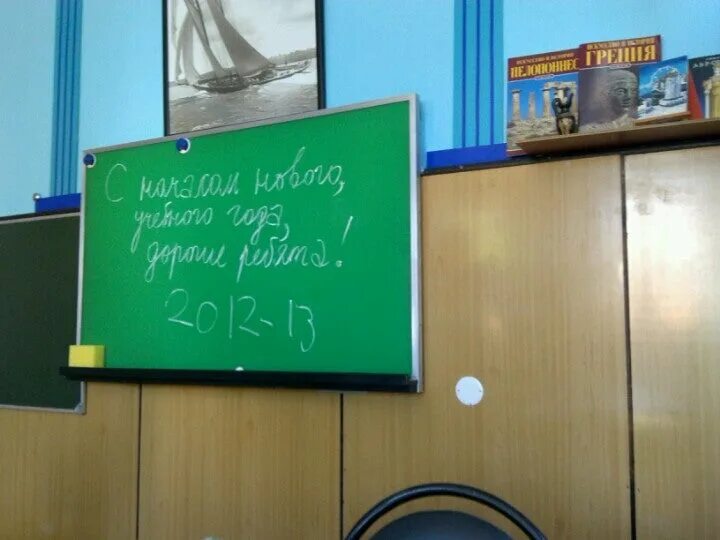 ИСКУССТВО И ИСТОРИЯ
ПЕЛОПОННЕС
ИСКУССТВО И ИСТОРИЯ
ГРЕЦИЯ
С началом нового,
учебного года,
дорогие ребята!
2012-13